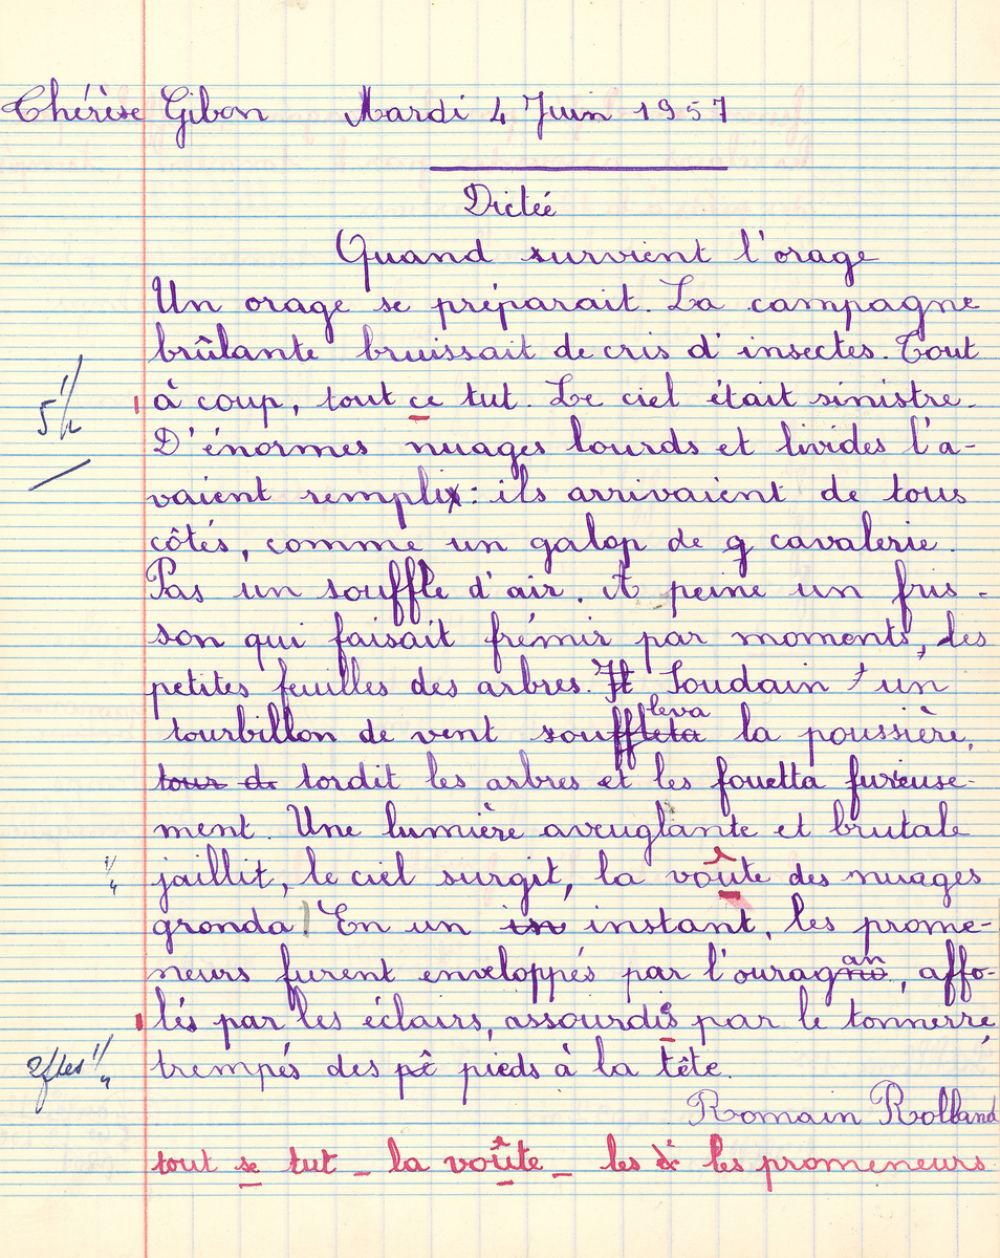 Thérèse Gibon Mardi 4 Juin 1957
Dictée
Quand survient l'orage
Un orage se préparait. La campagne
brûlante bruissait de cris d'insectes. Tout
à coup, tout ce tut. Le ciel était sinistre.
D'énormes nuages lourds et livides l'a-
vaient rempli : ils arrivaient de tous
côtés, comme un galop de g cavalerie.
Pas un souffle d'air. A peine un fris-
son qui faisait frémir par moments, les
petites feuilles des arbres. It Soudain, un
tourbillon de vent souffleta leva la poussière,
tour de tordit les arbres et les fouetta furieuse-
ment. Une lumière aveuglante et brutale
jaillit, le ciel surgit, la voûte des nuages
gronda. En un in instant, les prome-
neurs furent enveloppés par l'ouragan, affo-
lés par les éclairs, assourdis par le tonnerre,
trempés des pê pieds à la tête.
Romain Rolland
tout se tut _ la voûte _ les d les promeneurs